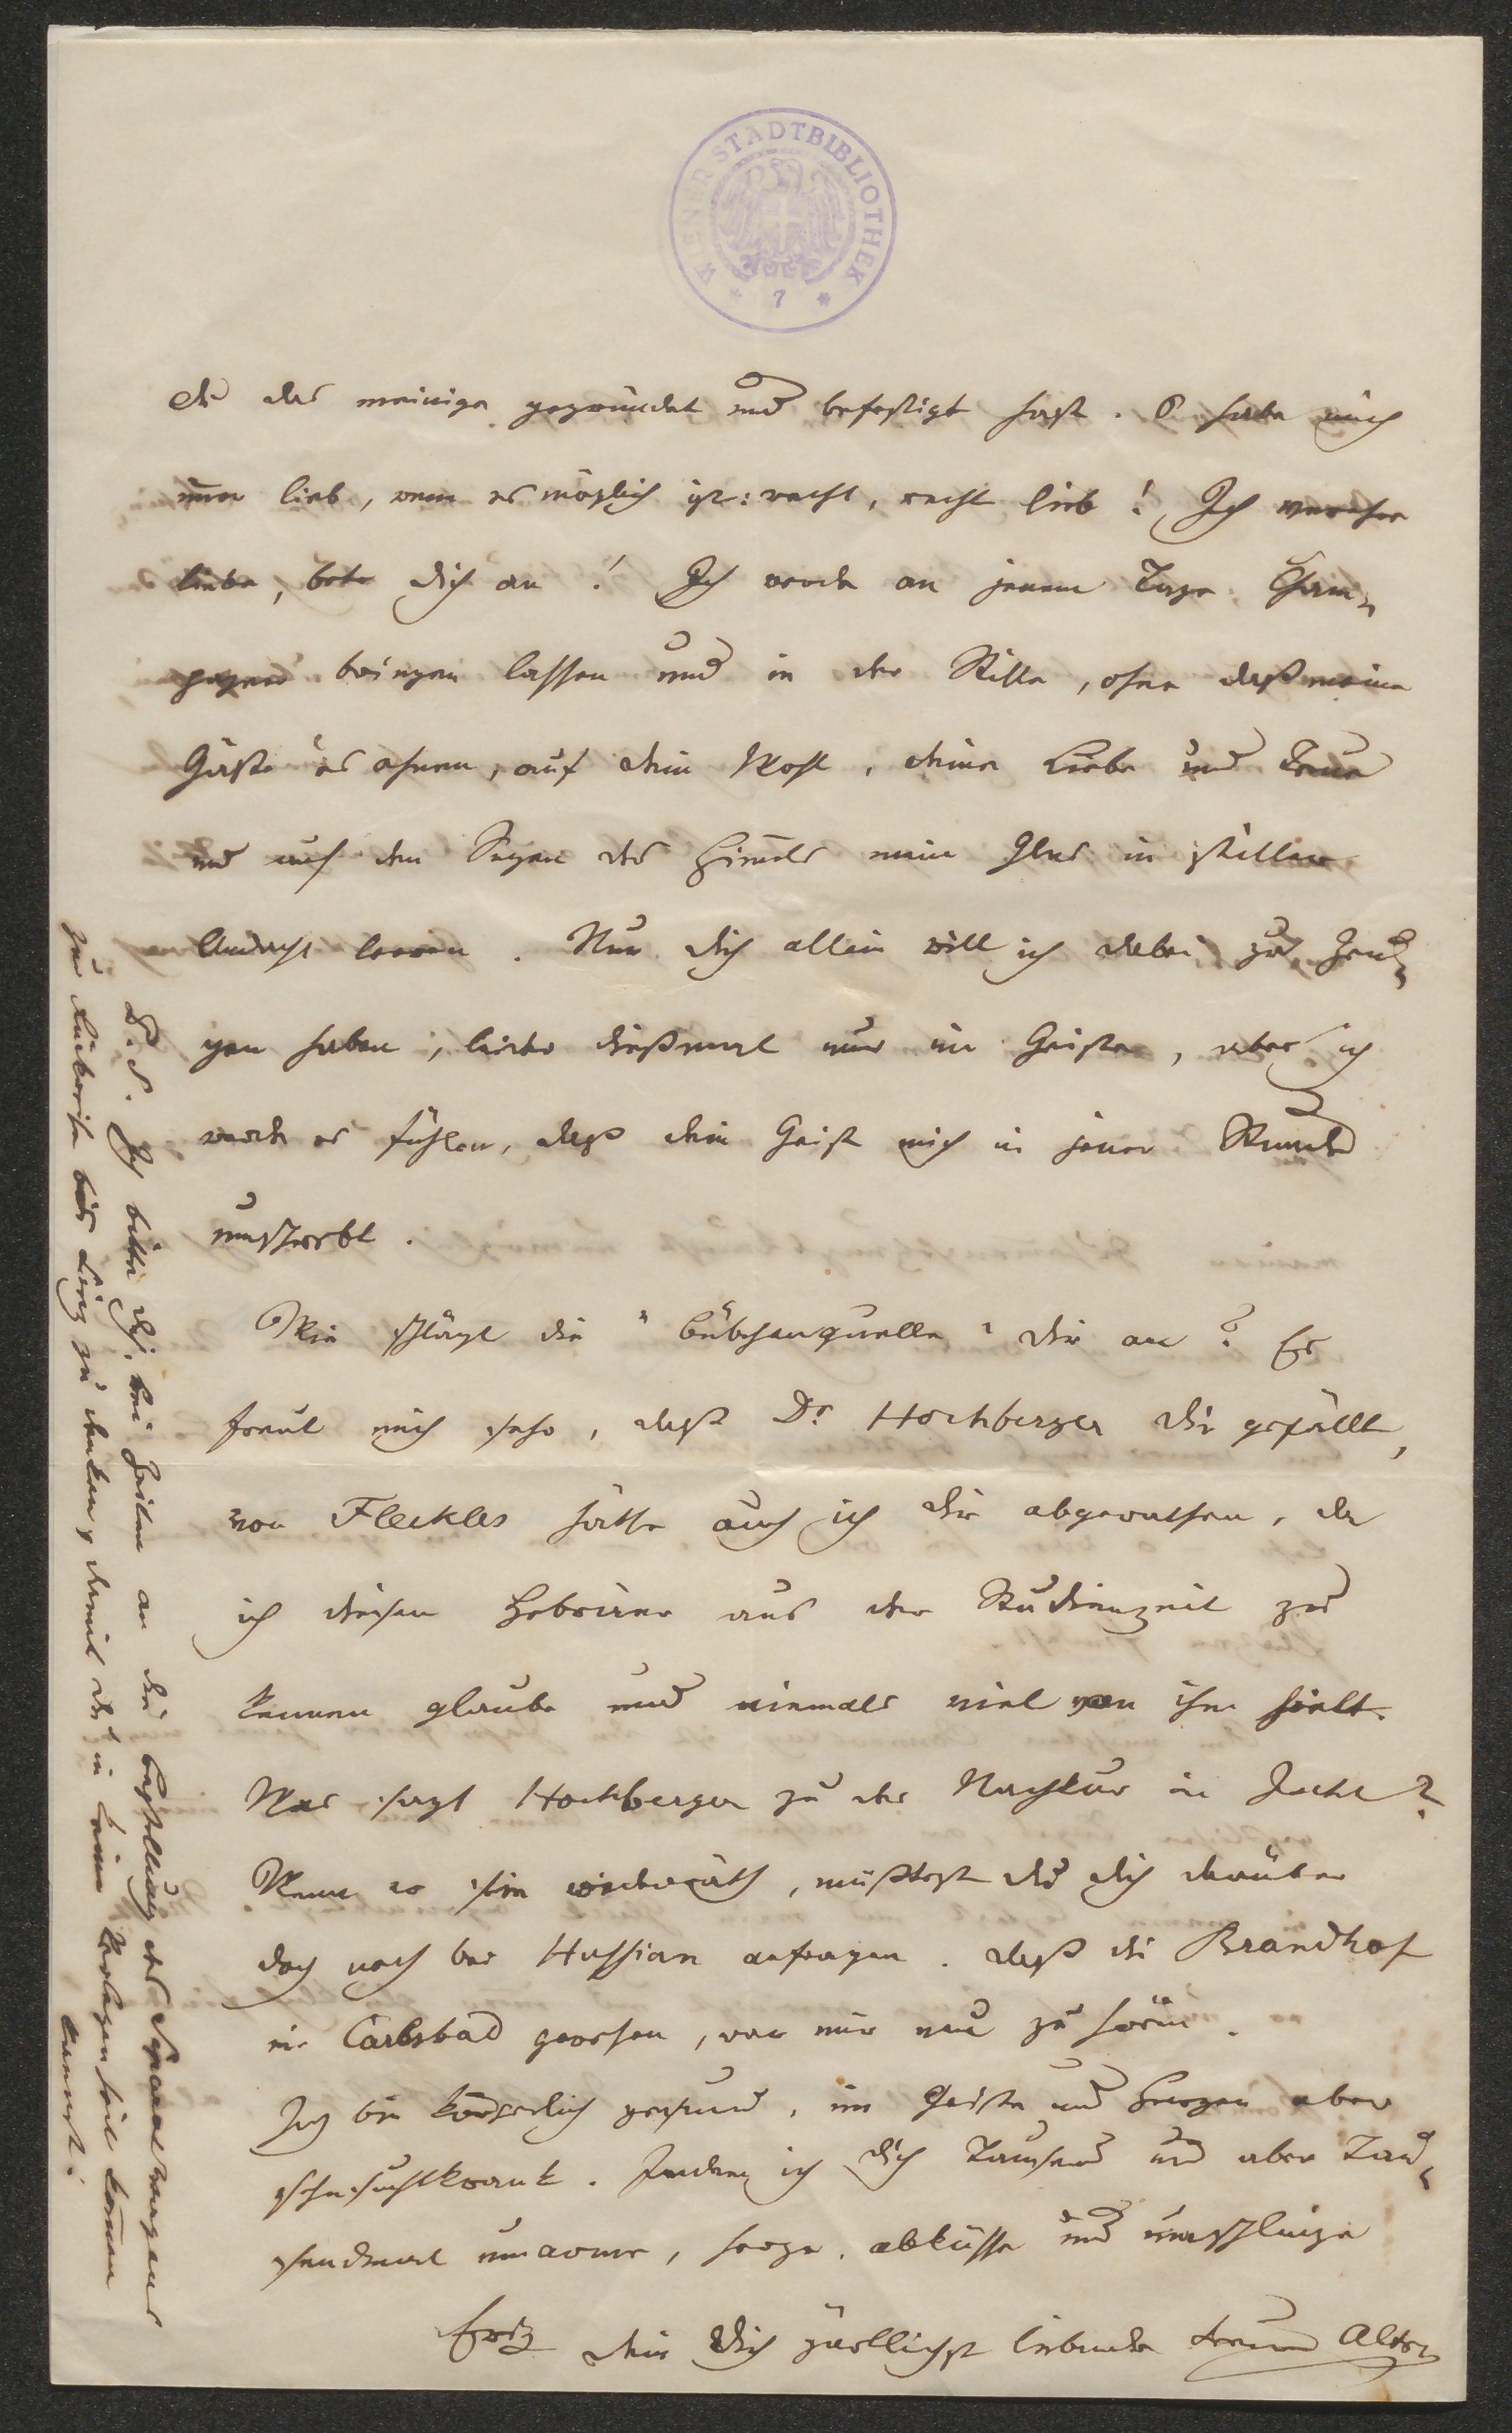 WIENER STADTBIBLIOTHEK
* 7 *
du das meinige gegründet und befestigt hast. O habe mich
nur lieb, wenn es möglich ist: recht, recht lieb! Ich verehre
liebe, bete dich an! Ich werde an jenem Tage Cham-
pagner bringen lassen und in der Stille, ohne daß meine
Gäste es ahnen, auf dein Wohl, deine Liebe und Treue
und auf den Segen des Himels mein Glas in stiller
Andacht leeren. Nur dich allein will ich dabei zur Zeu-
gen haben, leider dießmal nur im Geiste, aber ich
werde es fühlen, daß dein Geist mich in jener Stunde
umschwebt.
Wie schlägt die "Bübchenquelle" dir an? Es
freut mich sehr, daß Dr Hochberger dir gefällt,
von Fleckles hätte auch ich dir abgerathen, da
ich diesen Hebräer aus der Studienzeit zu
kennen glaube und niemals viel von ihm hielt.
Was sagt Hochberger zu der Nachkur in Ischl?
Wenn er sie widerräth, müßtest du dich darüber
doch noch bei Hussian anfragen. Daß die Brandhof
in Carlsbad gewesen, war mir neu zu hören.
Ich bin körperlich gesund, im Geiste und Herzen aber
sehnsuchtkrank. Indem ich dich Tausend und aber Tau-
sendmal umarme, herze, abküsse und umschlinge
Ewig dein dich zärtlichst liebender treuer Alter
P.S. Ich bitte dich, bei Zeiten an die Bestellung des Separatwagens
zur Rückreise bis Linz zu denken, damit du in keine Verlegenheit komen
kannst.